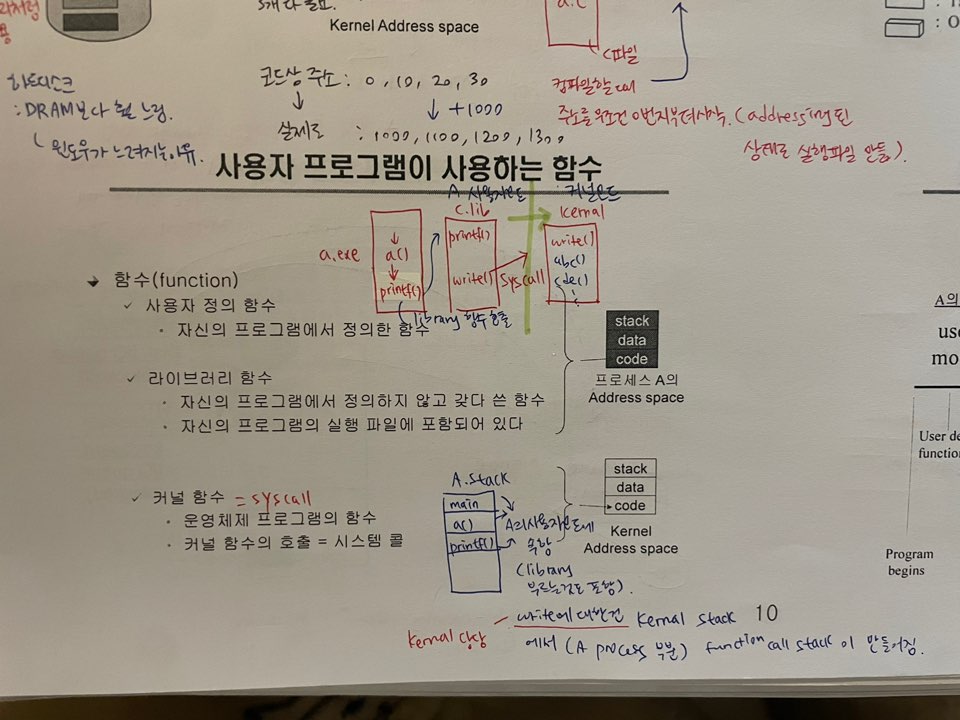 라처럼
용
5개 다 필요.
Kernel Address space
a.c
C파일
하드디스크
: DRAM보다 훨 느림.
윈도우가 느려지는 이유.
코드상 주소 : 0, 10, 20, 30
↓ +1000
실제로 : 1000, 1100, 1200, 1300
컴파일할 때
주소를 무조건 0번지부터 시작. (addressing된
상태로 실행파일 만듦).
사용자 프로그램이 사용하는 함수
A 사용자모드
: 커널모드
c.lib
kernal
a.exe
a()
printf()
printf()
write()
syscall
write()
abc()
sde()
library 함수 호출
함수(function)
✓ 사용자 정의 함수
• 자신의 프로그램에서 정의한 함수
✓ 라이브러리 함수
• 자신의 프로그램에서 정의하지 않고 갖다 쓴 함수
• 자신의 프로그램의 실행 파일에 포함되어 있다
stack
data
code
프로세스 A의
Address space
✓ 커널 함수 = syscall
• 운영체제 프로그램의 함수
• 커널 함수의 호출 = 시스템 콜
A.stack
main
a()
printf()
A의 사용자모드에
(library
부르는것도 포함).
stack
data
code
Kernel
Address space
write에 대한건 Kernal stack
에서 (A process 부분) function call stack이 만들어짐.
Kernal
10
A의
use
mo
User de
function
Program
begins